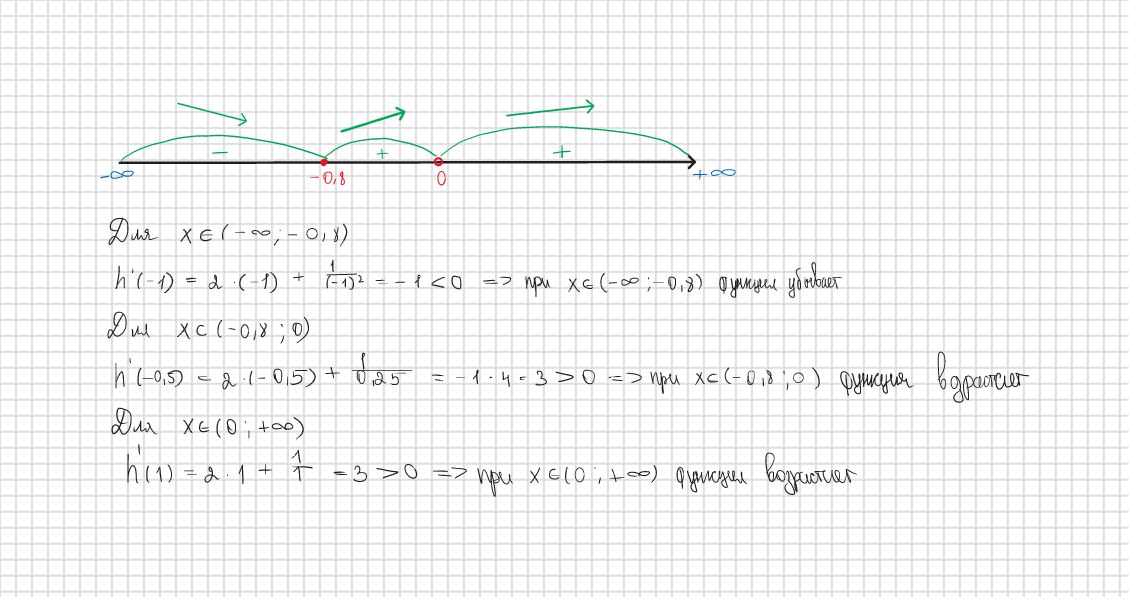 − + +
−∞ −0,8 0 +∞
Для x ∈ (−∞; −0,8)
h'(−1) = 2 · (−1) + 1/(−1)² = −1 < 0 => при x ∈ (−∞; −0,8) функция убывает
Для x ⊂ (−0,8 ; 0)
h'(−0,5) = 2 · (−0,5) + 1/0,25 = −1 · 4 = 3 > 0 => при x ⊂ (−0,8 ; 0) функция вздрастает
Для x ∈ (0 ; +∞)
h'(1) = 2 · 1 + 1/1 = 3 > 0 => при x ∈ (0 ; +∞) функция возрастает